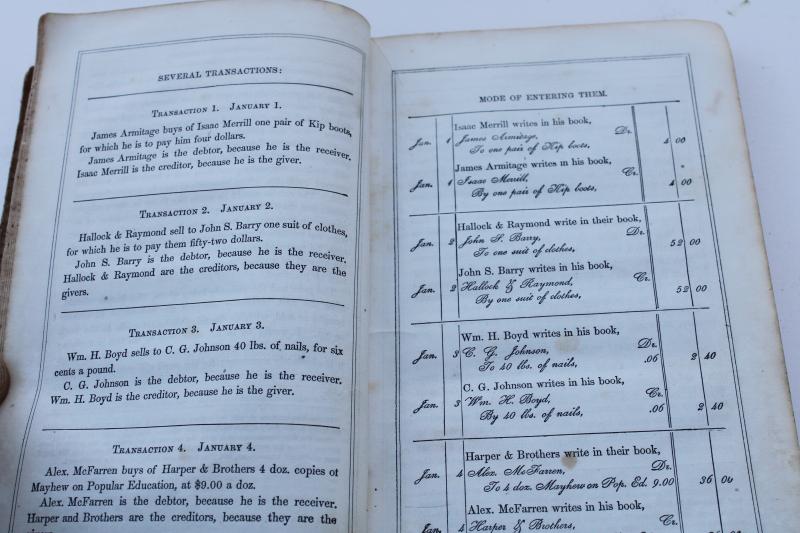 SEVERAL TRANSACTIONS:
TRANSACTION 1. JANUARY 1.
James Armitage buys of Isaac Merrill one pair of Kip boots,
for which he is to pay him four dollars.
James Armitage is the debtor, because he is the receiver.
Isaac Merrill is the creditor, because he is the giver.
TRANSACTION 2. JANUARY 2.
Hallock & Raymond sell to John S. Barry one suit of clothes,
for which he is to pay them fifty-two dollars.
John S. Barry is the debtor, because he is the receiver.
Hallock & Raymond are the creditors, because they are the
givers.
TRANSACTION 3. JANUARY 3.
Wm. H. Boyd sells to C. G. Johnson 40 lbs. of nails, for six
cents a pound.
C. G. Johnson is the debtor, because he is the receiver.
Wm. H. Boyd is the creditor, because he is the giver.
TRANSACTION 4. JANUARY 4.
Alex. McFarren buys of Harper & Brothers 4 doz. copies of
Mayhew on Popular Education, at $9.00 a doz.
Alex. McFarren is the debtor, because he is the receiver.
Harper and Brothers are the creditors, because they are the
MODE OF ENTERING THEM.
Isaac Merrill writes in his book,
Jan. 1 James Armitage, Dr.
To one pair of Kip boots, 4 00
James Armitage writes in his book,
Jan. 1 Isaac Merrill, Cr.
By one pair of Kip boots, 4 00
Hallock & Raymond write in their book,
Jan. 2 John S. Barry, Dr.
To one suit of clothes, 52 00
John S. Barry writes in his book,
Jan. 2 Hallock & Raymond, Cr.
By one suit of clothes, 52 00
Wm. H. Boyd writes in his book,
Jan. 3 C. G. Johnson, Dr.
To 40 lbs. of nails, .06 2 40
C. G. Johnson writes in his book,
Jan. 3 Wm. H. Boyd, Cr.
By 40 lbs. of nails, .06 2 40
Harper & Brothers write in their book,
Jan. 4 Alex. McFarren, Dr.
To 4 doz. Mayhew on Pop. Ed. 9.00 36 00
Alex. McFarren writes in his book,
Jan. 4 Harper & Brothers, Cr.